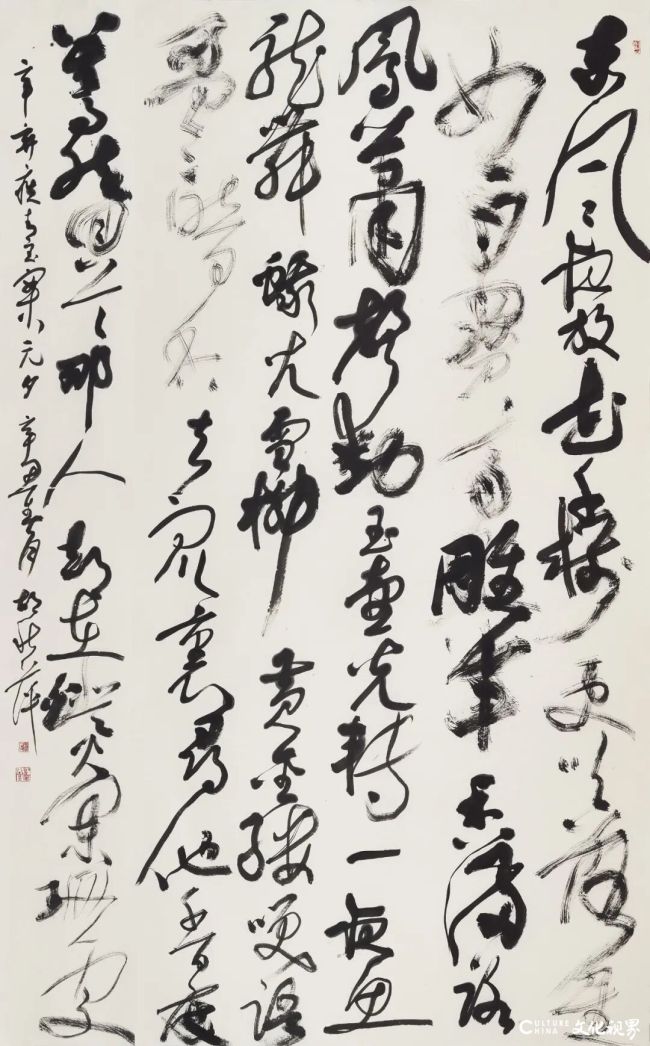 东风夜放花千樹更吹落星
如雨寶馬雕車香滿路
鳳簫聲動玉壺光轉一夜魚
龍舞蛾儿雪柳黄金縷笑語
盈盈暗香去眾裏尋他千百度
驀然回首那人卻在燈火闌珊處
辛弃疾青玉案元夕辛丑春月胡秋萍
CULTURE CHINA 文化视界